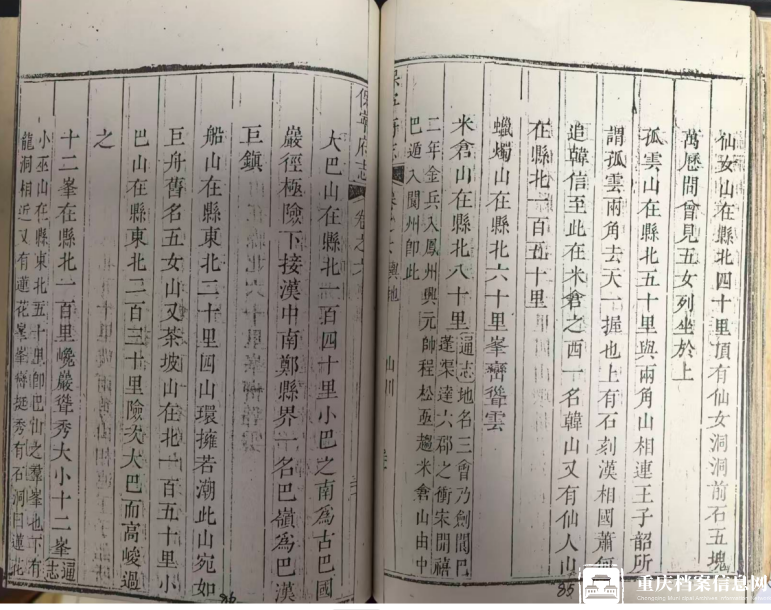 仙女山在縣北四十里頂有仙女洞洞前石五塊
萬歷間曾見五女列坐於上
孤雲山在縣北五十里與兩角山相連王子韶所
謂孤雲兩角去天一握也上有石刻漢相國蕭何
追韓信至此在米倉之西一名韓山又有仙人山
在縣北一百五十里
蠟燭山在縣北六十里峯巒聳雲
米倉山在縣北八十里通志地名三會乃劍閬巴
蓬渠達六郡之衝宋開禧
二年金兵入鳳州興元帥程松亟趨米倉山由中
巴遁入閬州卽此
保寧府志 卷之六 輿地 山川
保寧府志 卷之六
大巴山在縣北一百四十里小巴之南爲古巴國
巖徑極險下接漢中南鄭縣界一名巴嶺爲巴漢
巨鎮
船山在縣東北二十里四山環擁若潮此山宛如
巨舟舊名五女山又茶坡山在北一百五十里小
巴山在縣東北二百三十里險次大巴而高峻過
之
十二峯在縣北一百里巉巖聳秀大小十二峯通志
小巫山在縣東北五十里卽巴仙之羣峯也下有
龍洞相近又有蓮花峯挺秀有石洞曰蓮花
85
86
重庆档案信息网